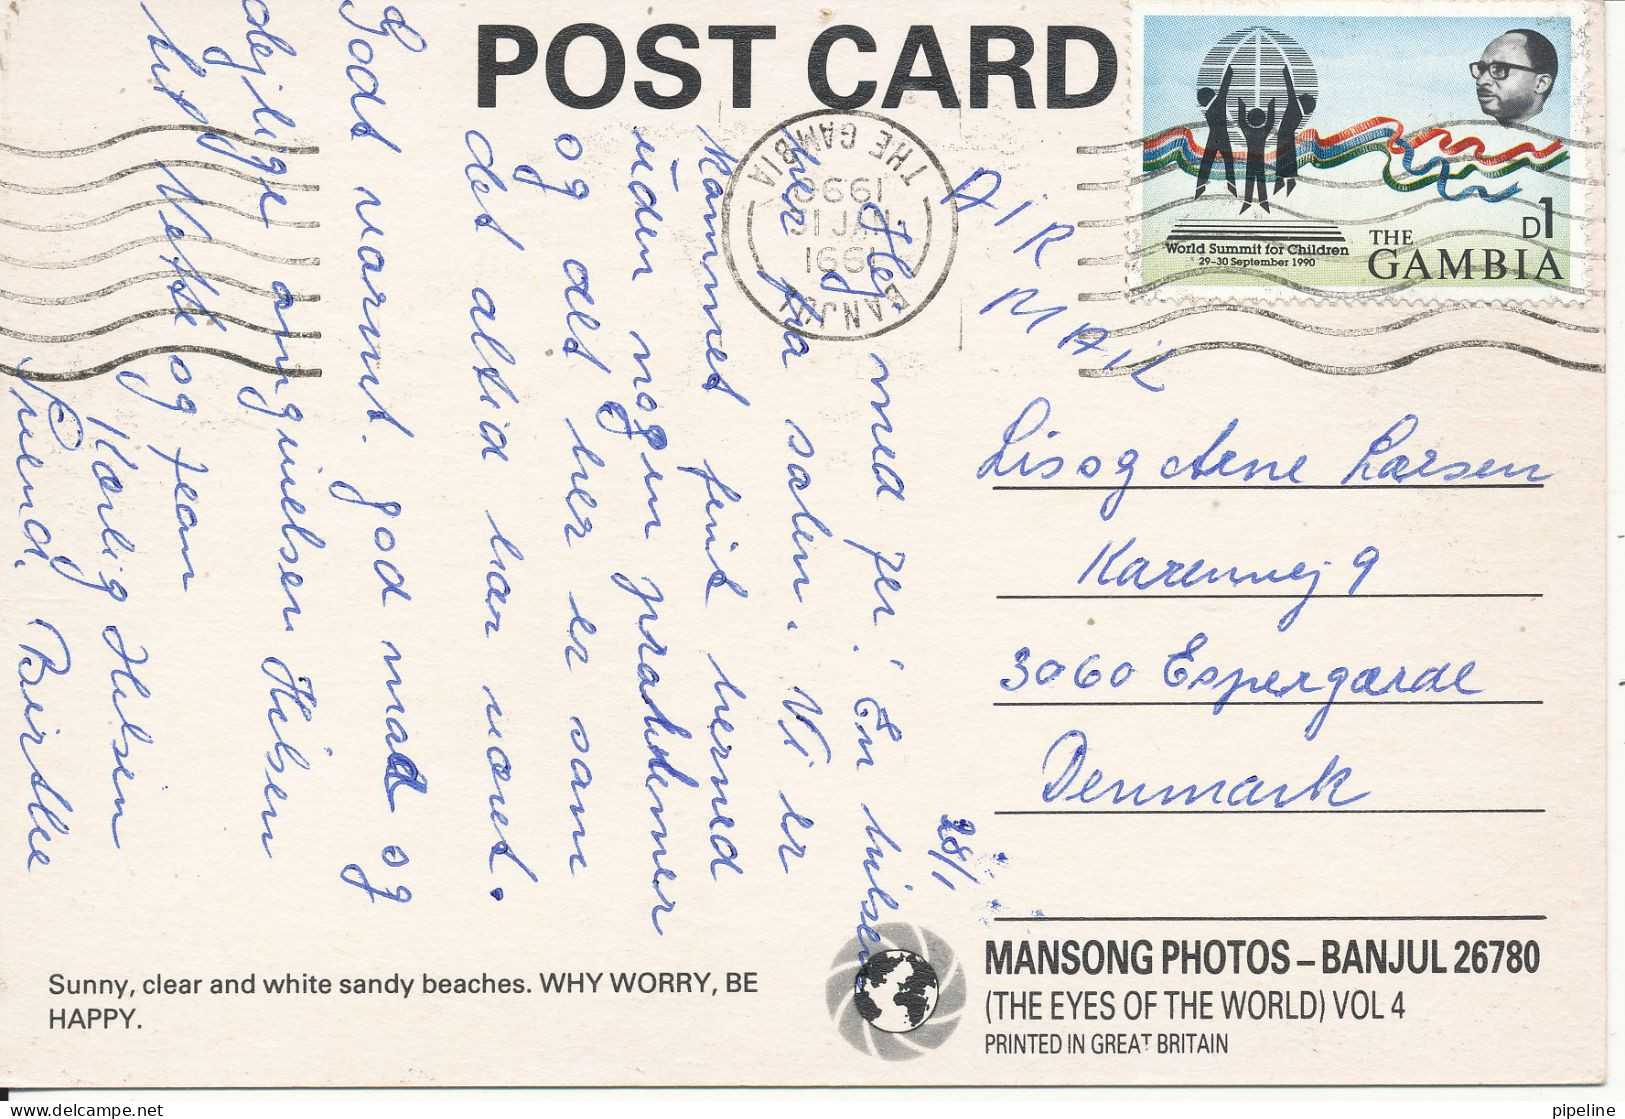 POST CARD
World Summit for Children
29-30 September 1990
THE GAMBIA
D1
THE GAMBIA
31 JAN
1991
BANJUL
AIR MAIL
28/1
Hej med jer! En hilsen
her fra solen. Vi er
kommet fint herned
uden nogen problemer
og alt her er som
det altid har været.
Godt varmt. god mad og
dejlige omgivelser. Hilsen
Mette og Jean
Kærlig Hilsen
Svend. Birthe
Lis og Arne Larsen
Karenvej 9
3060 Espergærde
Denmark
Sunny, clear and white sandy beaches. WHY WORRY, BE
HAPPY.
MANSONG PHOTOS – BANJUL 26780
(THE EYES OF THE WORLD) VOL 4
PRINTED IN GREAT BRITAIN
delcampe.net
pipeline